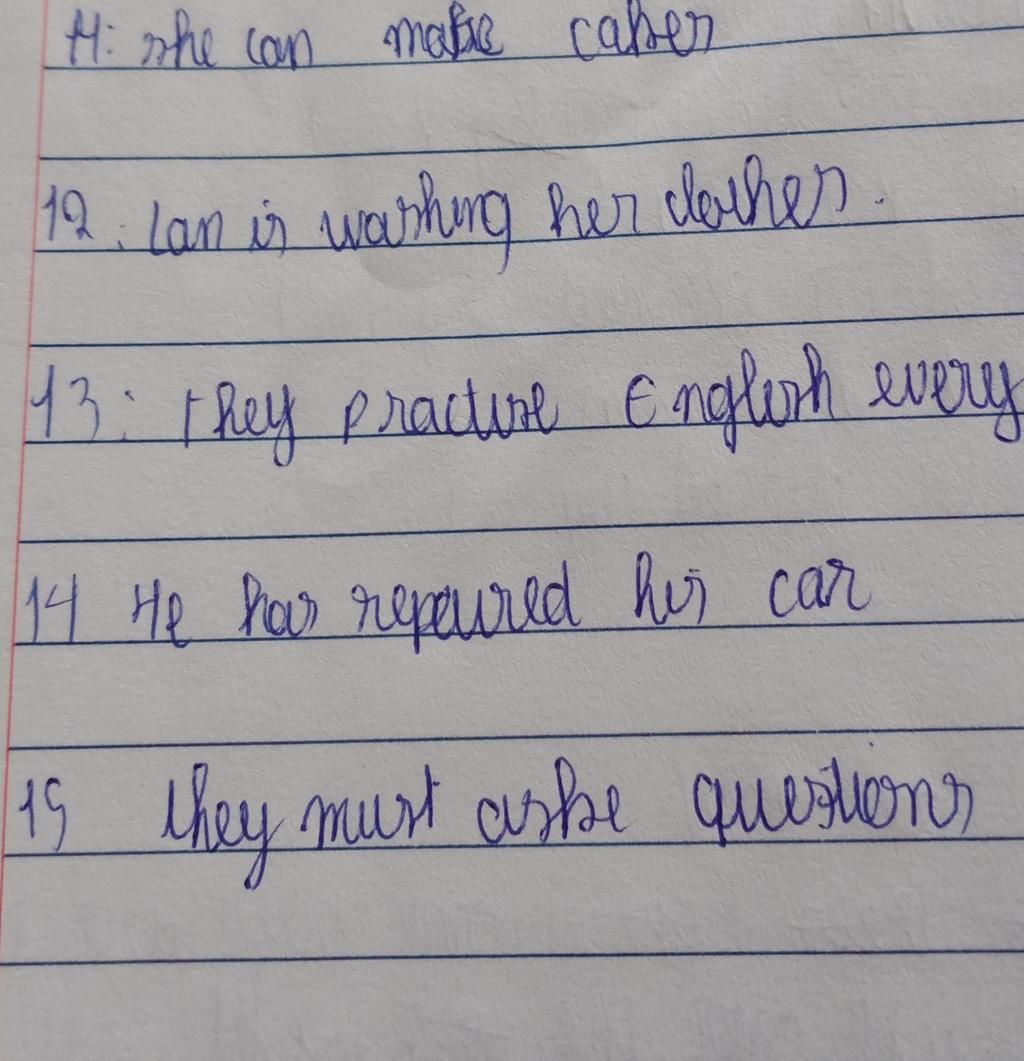 11: she can make cakes
12: Lan is washing her clothes.
13: They practise English every
14 He has repaired his car
15 they must aske questions